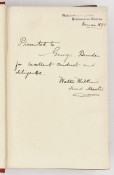 Presented to
George Bender
for excellent conduct and
diligence
Walter Wilkins
Head Master